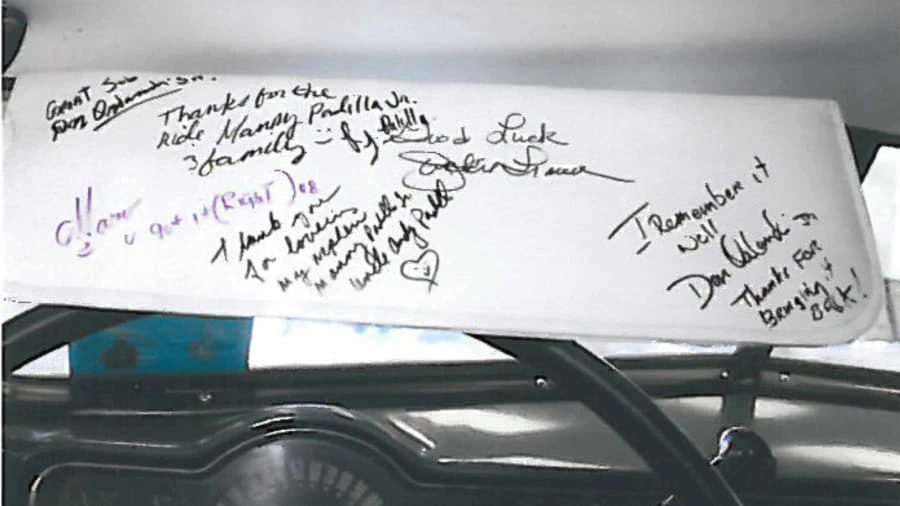 GREAT Job
Don
Thanks for the
Ride Manny Padilla Jr.
& family
Good Luck
Marc
u got it (Right) 08
Thank you
for loving
my nephew
Manny Padilla Jr
uncle Padilla
I Remember it
Well
Don Jr
Thanks For
Bringing it
Back!